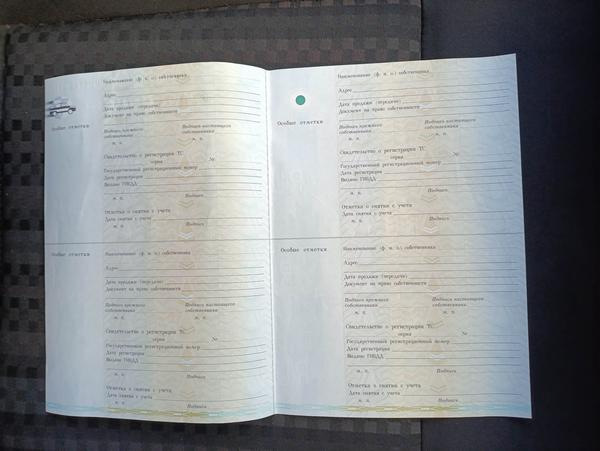 Наименование (ф. и. о.) собственника
Адрес
Дата продажи (передачи)
Документ на право собственности
Особые отметки
Подпись прежнего собственника
Подпись настоящего собственника
м. п.
м. п.
Свидетельство о регистрации ТС
серия №
Государственный регистрационный номер
Дата регистрации
Выдано ГИБДД
м. п. Подпись
Отметка о снятии с учета
Дата снятия с учета
м. п. Подпись
Наименование (ф. и. о.) собственника
Адрес
Дата продажи (передачи)
Документ на право собственности
Особые отметки
Подпись прежнего собственника
Подпись настоящего собственника
м. п.
м. п.
Свидетельство о регистрации ТС
серия №
Государственный регистрационный номер
Дата регистрации
Выдано ГИБДД
м. п. Подпись
Отметка о снятии с учета
Дата снятия с учета
м. п. Подпись
Особые отметки
Наименование (ф. и. о.) собственника
Адрес
Дата продажи (передачи)
Документ на право собственности
Подпись прежнего собственника
Подпись настоящего собственника
м. п.
м. п.
Свидетельство о регистрации ТС
серия №
Государственный регистрационный номер
Дата регистрации
Выдано ГИБДД
м. п. Подпись
Отметка о снятии с учета
Дата снятия с учета
м. п. Подпись
Особые отметки
Наименование (ф. и. о.) собственника
Адрес
Дата продажи (передачи)
Документ на право собственности
Подпись прежнего собственника
Подпись настоящего собственника
м. п.
м. п.
Свидетельство о регистрации ТС
серия №
Государственный регистрационный номер
Дата регистрации
Выдано ГИБДД
м. п. Подпись
Отметка о снятии с учета
Дата снятия с учета
м. п. Подпись